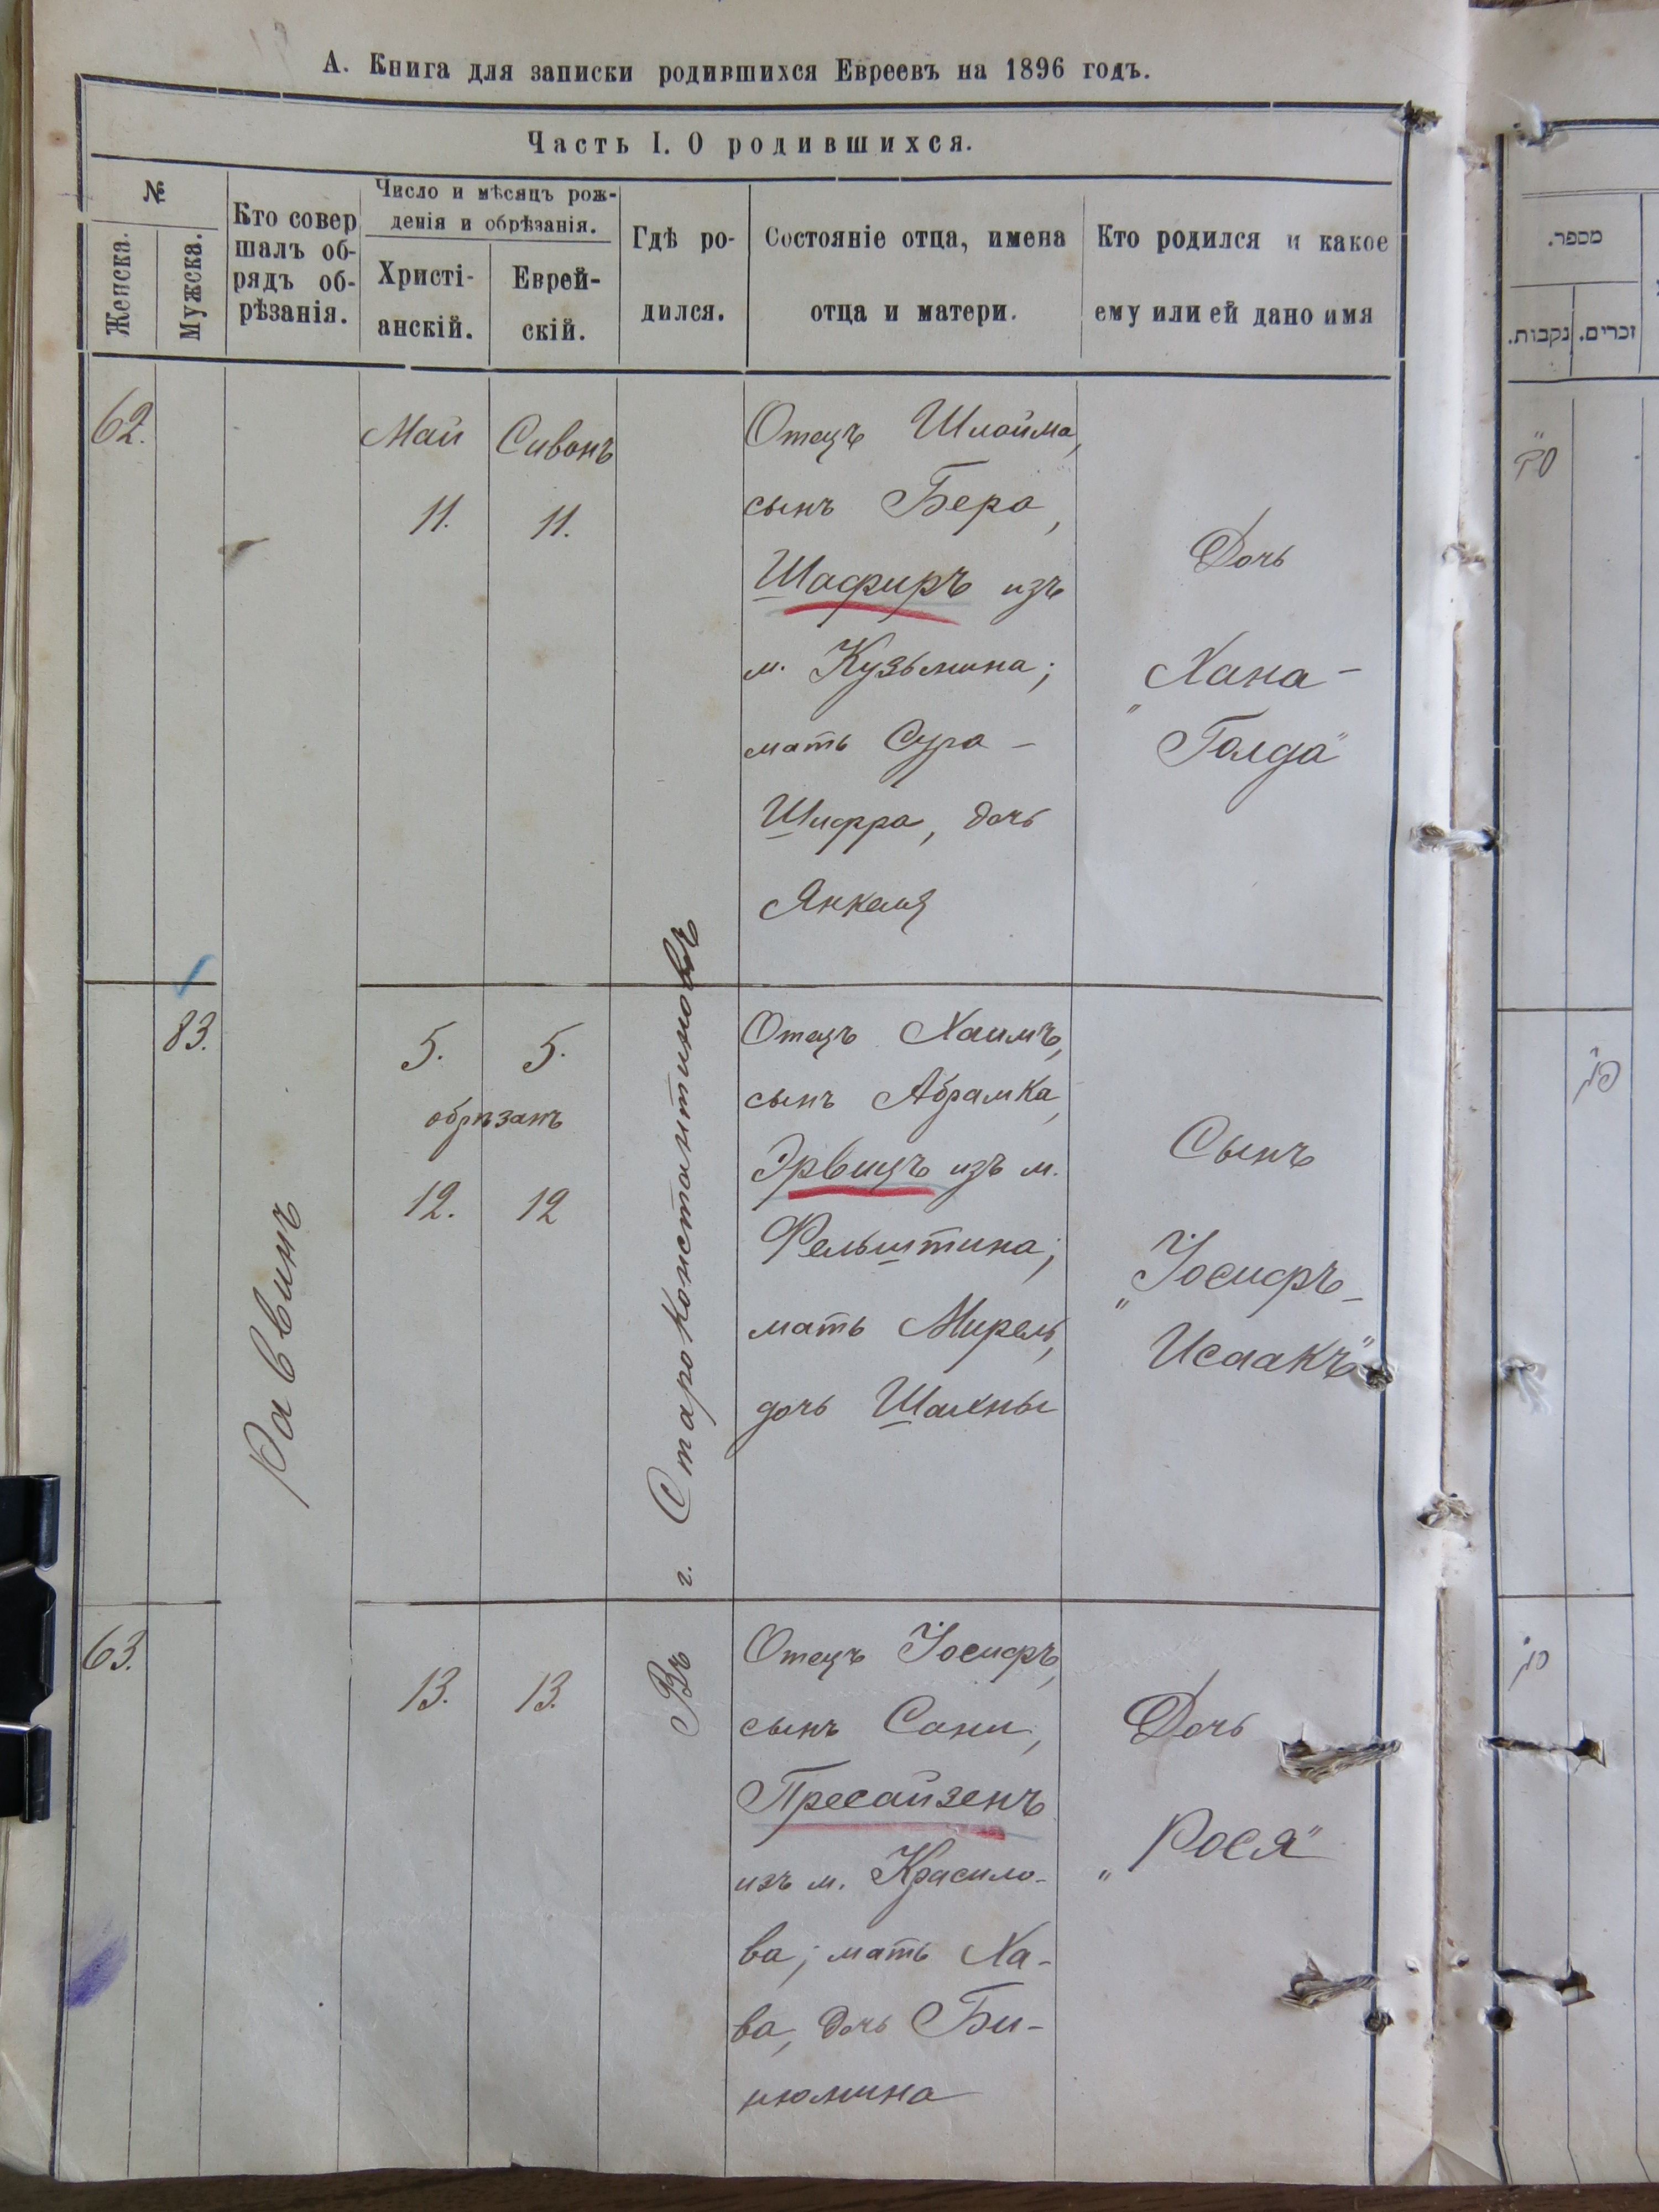 А. Книга для записки родившихся Евреевъ на 1896 годъ.
Часть I. О родившихся.
№
Женска.
Мужска.
Кто совер
шалъ об-
рядъ об-
рѣзанія.
Число и мѣсяцъ рож-
денія и обрѣзанія.
Христі-
анскій.
Еврей-
скій.
Гдѣ ро-
дился.
Состояніе отца, имена
отца и матери.
Кто родился и какое
ему или ей дано имя
62.
Май
11.
Сивонъ
11.
Отецъ Шлойма,
сынъ Бера,
Шафиръ изъ
м. Кузьмина;
мать Сура -
Шифра, дочь
Янкеля
Дочь
„Хана-
Голда"
Раввинъ
Въ г. Староконстантиновѣ
83.
5. 5.
обрѣзанъ
12. 12
Отецъ Хаимъ,
сынъ Абрамка,
Эрвицъ изъ м.
Фельштина;
мать Мирель,
дочь Шахны
Сынъ
„Іосифъ-
Исаакъ"
63.
13. 13.
Отецъ Іосифъ,
сынъ Сани,
Пресайзенъ
изъ м. Красило-
ва; мать Ха-
ва, дочь Би-
нюмина
Дочь
„Рося"
מספר.
נקבות.
זכרים.